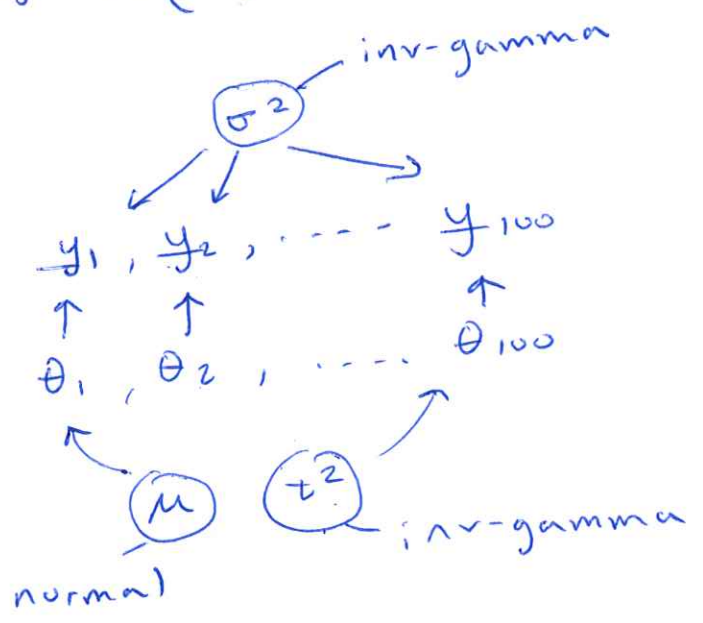 inv-gamma
σ²
y₁, y₂, ..... y₁₀₀
θ₁, θ₂, ..... θ₁₀₀
μ t²
inv-gamma
normal